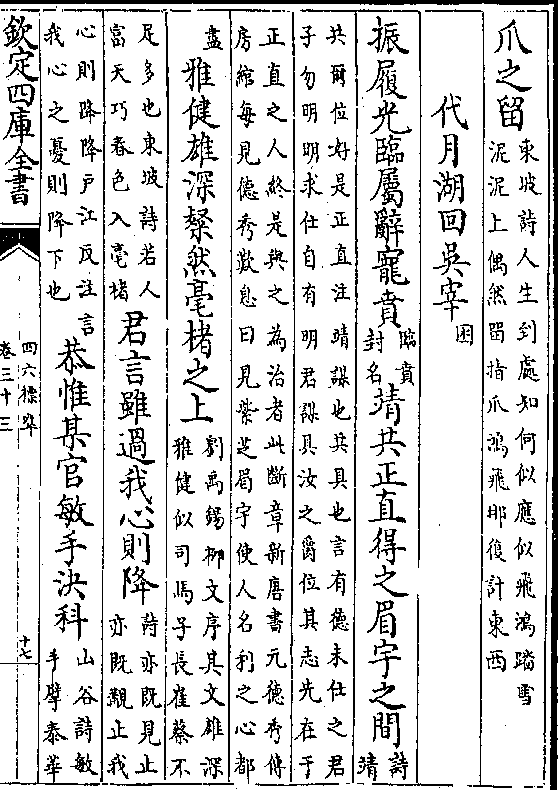 爪之留
東坡詩人生到處知何似應似飛鴻踏雪
泥泥上偶然留指爪鴻飛那復計東西
代月湖回吳宰
困
振履光臨屬辭寵賁
臨賁
封名
靖共正直得之眉宇之間
詩
靖
共爾位好是正直注靖謀也共具也言有德未仕之君
子勿明明求仕自有明君謀具汝之爵位其志先在于
正直之人終是與之為治者此斷章新唐書元德秀傳
房綰每見德秀歎息曰見紫芝眉宇使人名利之心都
盡
雅健雄深粲然毫楮之上
劉禹錫柳文序其文雄深
雅健似司馬子長崔蔡不
足多也東坡詩若人
富天巧春色入毫楮
君言雖過我心則降
詩亦既見止
亦既覯止我
心則降降戶江反注言
我心之憂則降下也
恭惟某官敏手決科
山谷詩敏
手擘泰華
欽定四庫全書
四六標準
卷三十三
十七